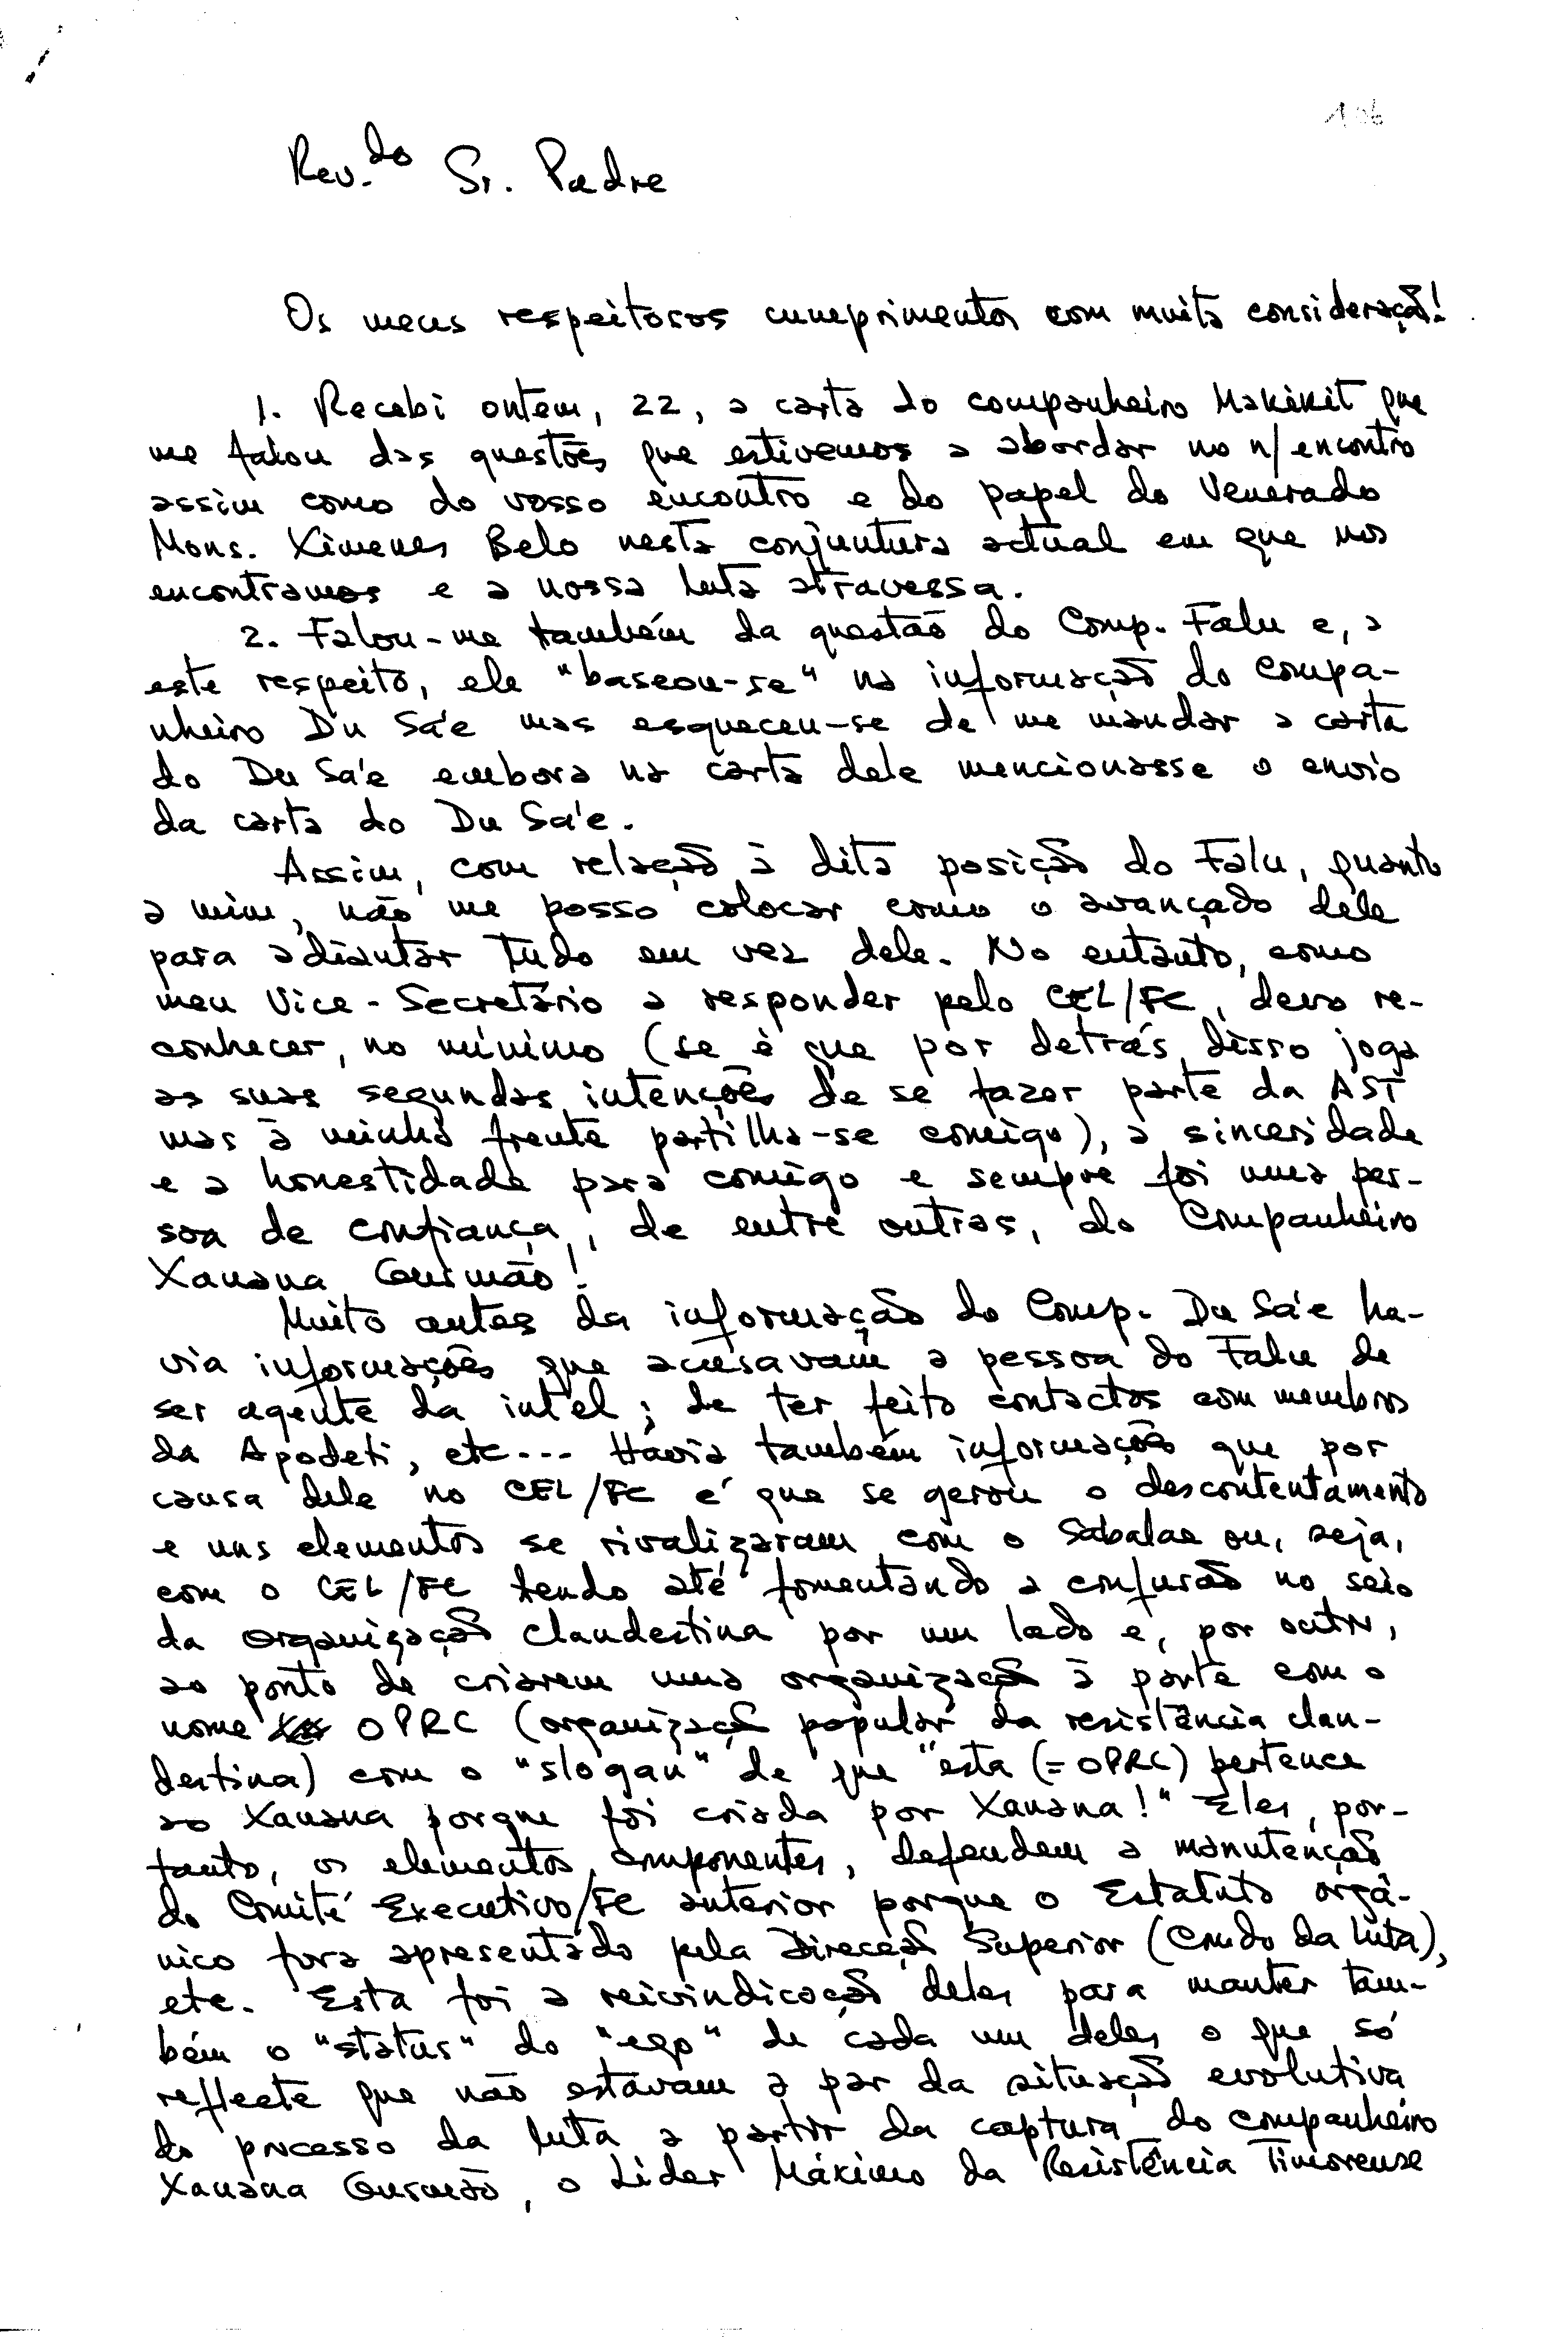 106
Rev.do Sr. Padre
Os meus respeitosos cumprimentos com muita consideração!
1. Recebi ontem, 22, a carta do companheiro Makikit que
me falou das questões que estivemos a abordar no n/encontro
assim como do vosso encontro e do papel do Venerado
Mons. Ximenes Belo nesta conjuntura actual em que nos
encontramos e a nossa luta atravessa.
2. Falou-me também da questão do Comp. Falu e, a
este respeito, ele "baseou-se" na informação do compa-
nheiro Du Sa'e mas esqueceu-se de me mandar a carta
do Du Sa'e embora na carta dele mencionasse o envio
da carta do Du Sa'e.
Assim, com relação à dita posição do Falu, quanto
a mim, não me posso colocar como o avançado dele
para adiantar tudo em vez dele. No entanto, como
meu Vice-Secretário a responder pelo CEL/FC, devo re-
conhecer, no mínimo (se é que por detrás disso joga
as suas segundas intenções de se fazer parte da AST
mas à minha frente partilha-se comigo), a sinceridade
e a honestidade para comigo e sempre foi uma pes-
soa de confiança, de entre outras, do Companheiro
Xanana Gusmão!
Muito antes da informação do Comp. Du Sa'e ha-
via informações que acusavam a pessoa do Falu de
ser agente da intel; de ter feito contactos com membros
da Apodeti, etc... Havia também informações que por
causa dele no CEL/FC é que se gerou o descontentamento
e uns elementos se rivalizaram com o Sabalae ou, seja,
com o CEL/FC tendo até fomentando a confusão no seio
da organização clandestina por um lado e, por outro,
ao ponto de criarem uma organização à parte com o
nome OPRC (organização popular da resistência clan-
destina) com o "slogan" de que "esta (=OPRC) pertence
ao Xanana porque foi criada por Xanana!" Eles, por-
tanto, os elementos componentes, defendem a manutenção
do Comité Executivo/FC anterior porque o Estatuto orgâ-
nico fora apresentado pela Direcção Superior (Cmdo da Luta),
etc. Esta foi a reivindicação deles para manter tam-
bém o "status" do "ego" de cada um deles o que só
reflecte que não estavam a par da situação evolutiva
do processo da luta a partir da captura do companheiro
Xanana Gusmão, o Líder Máximo da Resistência Timorense